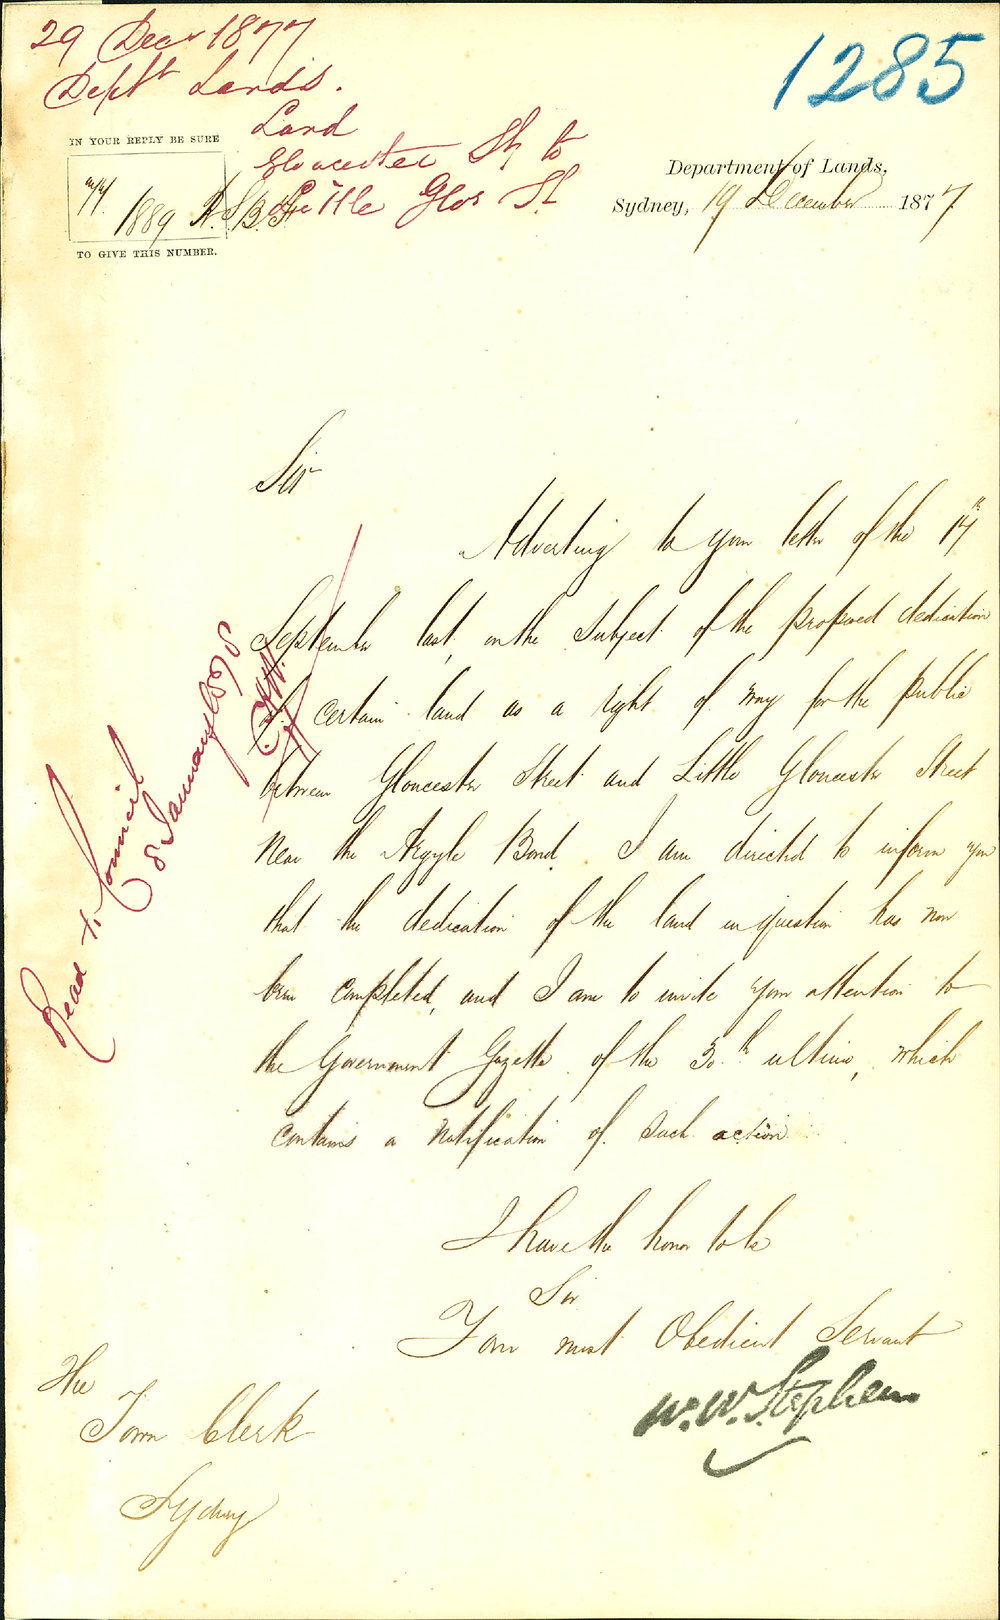 29 Decr 1877
Deptt Lands.
Land
Gloucester St to
Little Glos St
1285
IN YOUR REPLY BE SURE
1889
TO GIVE THIS NUMBER.
Department of Lands,
Sydney, 19 December 1877.
Sir
Adverting to your letter of the 17th
September last, on the subject of the proposed dedication
of certain land as a right of way for the public
between Gloucester Street and Little Gloucester Street
near the Argyle Bond. I am directed to inform you
that the dedication of the land in question has now
been completed, and I am to invite your attention to
the Government Gazette of the 30th ultimo, which
contains a notification of such action
I have the honor to be
Sir
Your most Obedient Servant
W. W. Stephen
The
Town Clerk
Sydney
Read to Council
8 January 1878